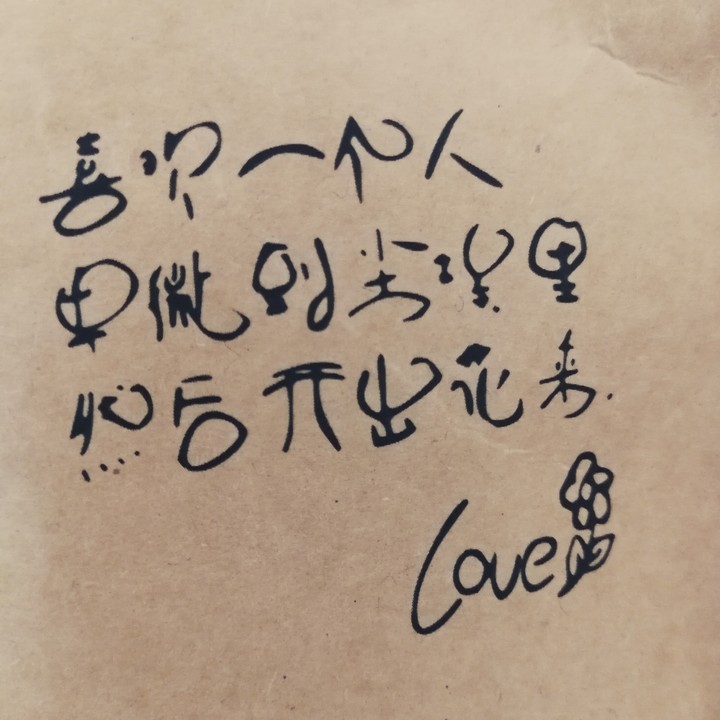 喜欢一个人
卑微到尘埃里
然后开出花来.
Love